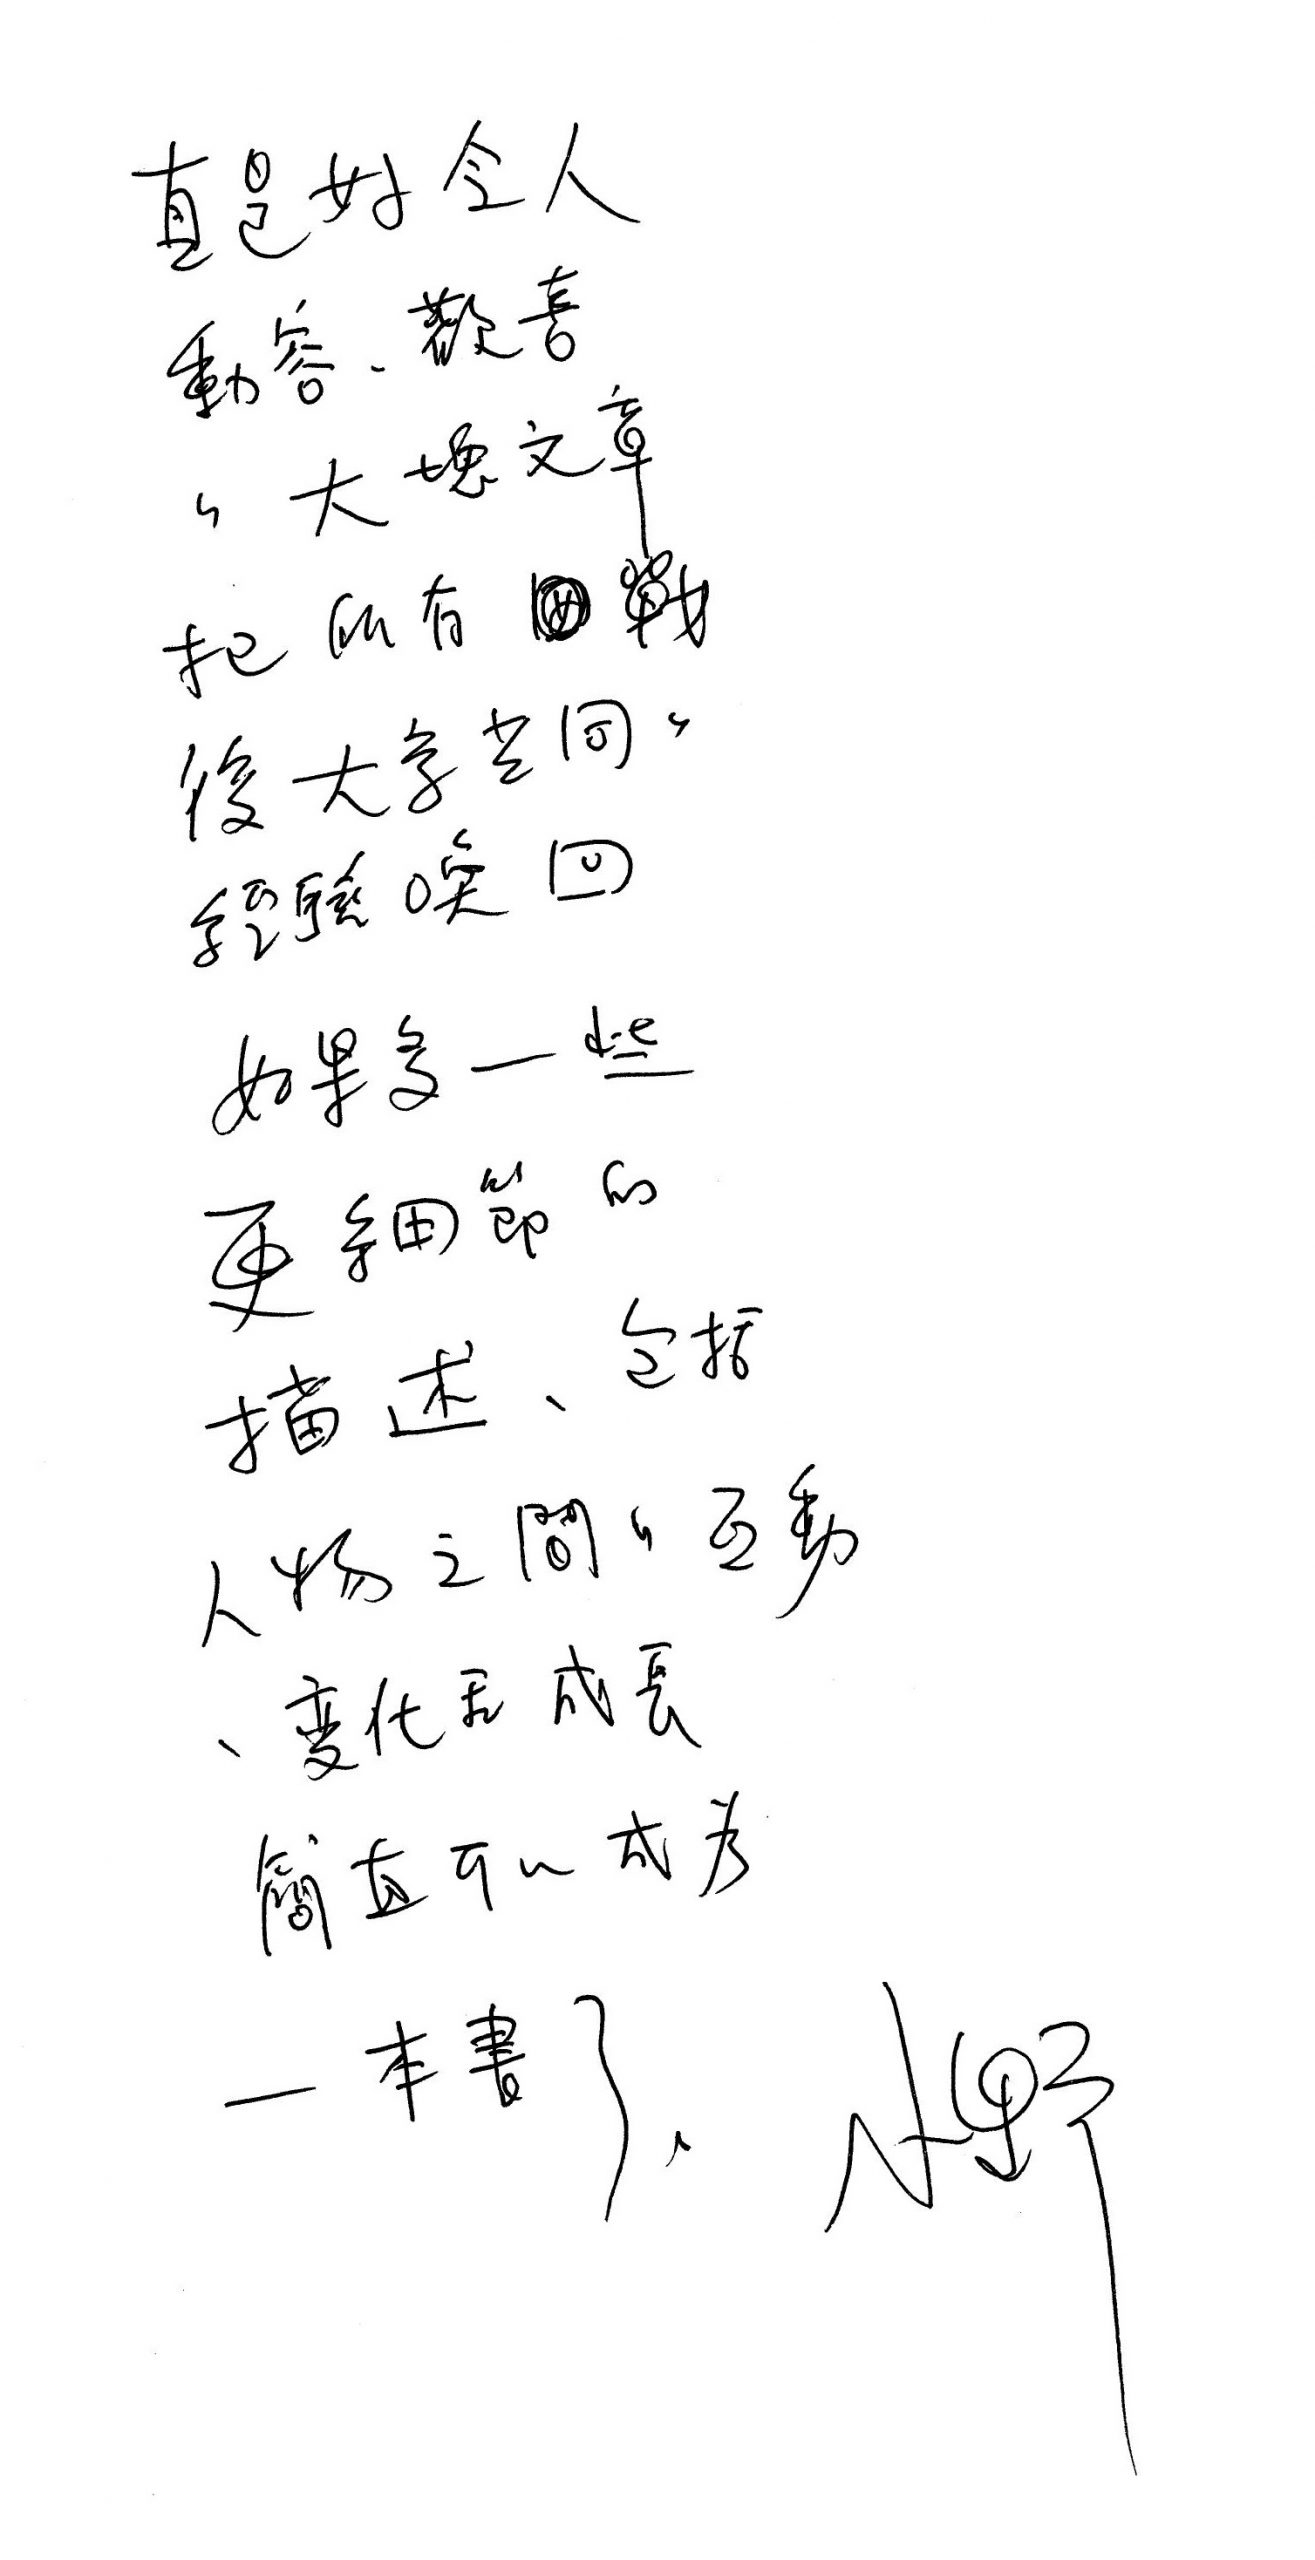 真是好令人
動容、歡喜
的大塊文章
把所有戰
後大學共同的
經驗喚回
如果多一些
更細節的
描述、包括
人物之間的互動
、变化和成長
簡直可以成為
一本書了、
小野